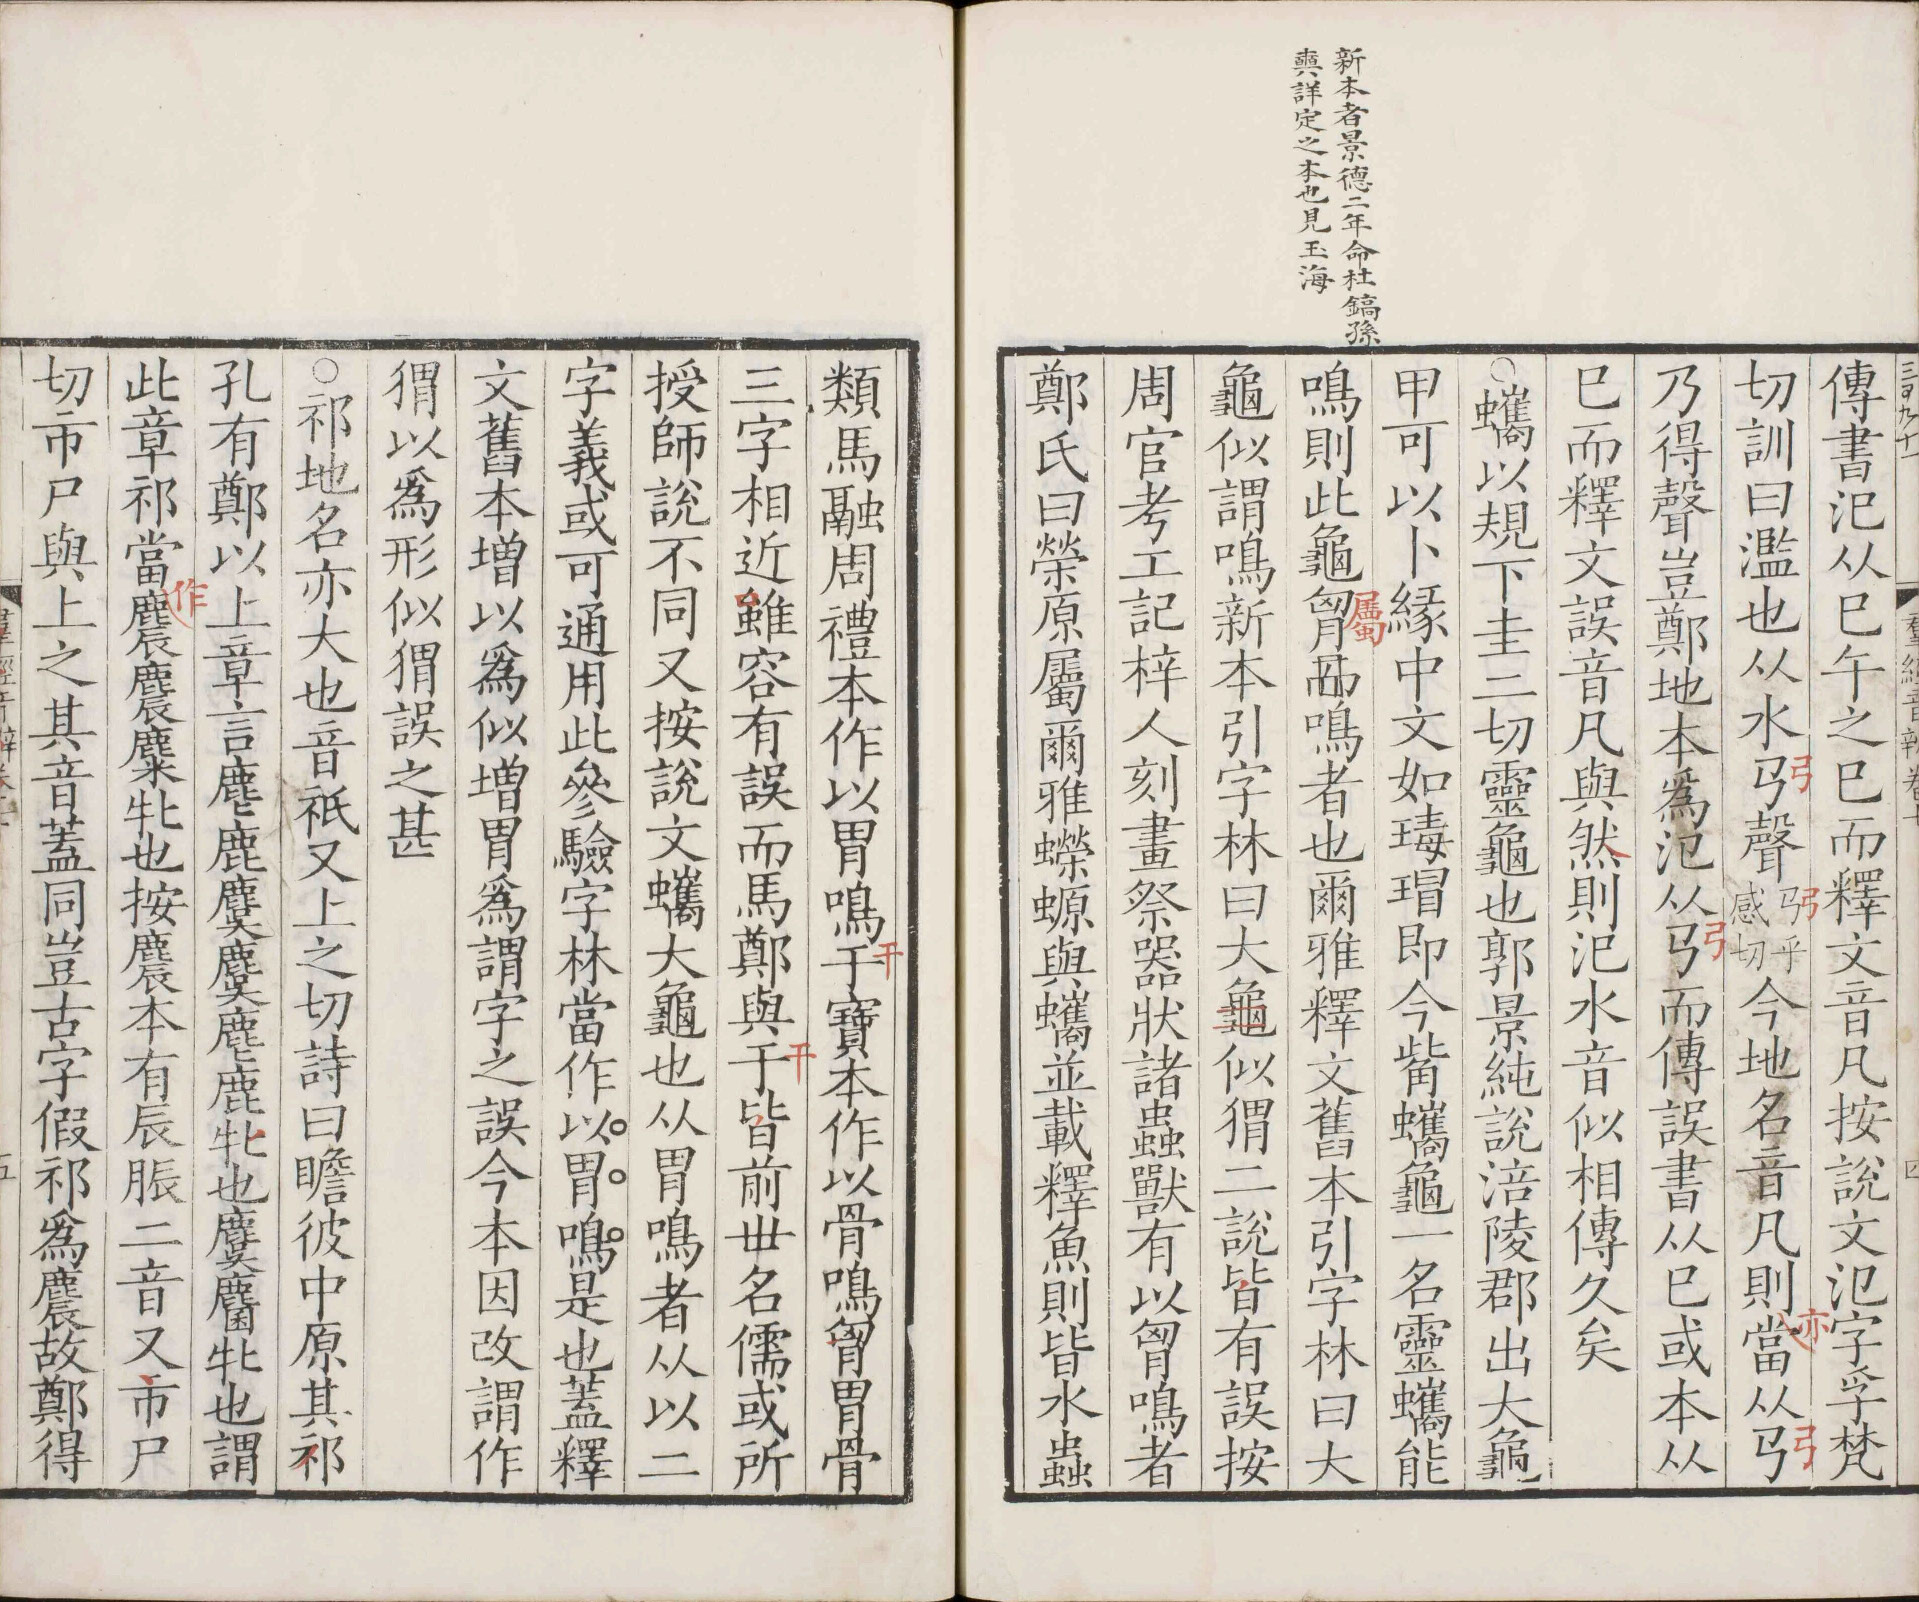 新本者景德二年命杜鎬孫
奭詳定之本也見玉海
傳書汜从巳午之巳而釋文音凡按說文氾字孚梵
切訓曰濫也从水㔾聲㔾乎感切今地名音凡則當从㔾
亦
乃得聲豈鄭地本爲氾从㔾而傳誤書从巳或本从
巳而釋文誤音凡與然則汜水音似相傳久矣
○蠵以規下圭二切靈龜也郭景純說涪陵郡出大龜
甲可以卜緣中文如瑇瑁即今觜蠵龜一名靈蠵能
鳴則此龜胷鳴者也爾雅釋文舊本引字林曰大
屬
龜似謂鳴新本引字林曰大龜似猬二說皆有誤按
周官考工記梓人刻畫祭器狀諸蟲獸有以胷鳴者
鄭氏曰榮原屬爾雅蠑螈與蠵並載釋魚則皆水蟲
類馬融周禮本作以胃鳴于寶本作以骨鳴胷胃骨
干
三字相近雖容有誤而馬鄭與于皆前世名儒或所
干
授師說不同又按說文蠵大龜也从胃鳴者从以二
字義或可通用此參驗字林當作以胃鳴是也蓋釋
文舊本增以爲似增胃爲謂字之誤今本因改謂作
猬以爲形似猬誤之甚
○祁地名亦大也音祇又上之切詩曰瞻彼中原其祁
孔有鄭以上章言麀鹿麌麌麀鹿牝也麌麕牡也謂
此章祁當麎麎麋牝也按麎本有辰脤二音又市尸
作
切市尸與上之其音蓋同豈古字假祁爲麎故鄭得